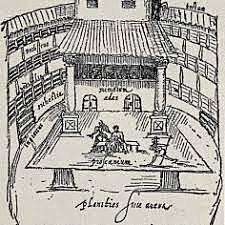 porticus
orchestra
ingressus
mimorum
ædes
proscænium
planities siue arena